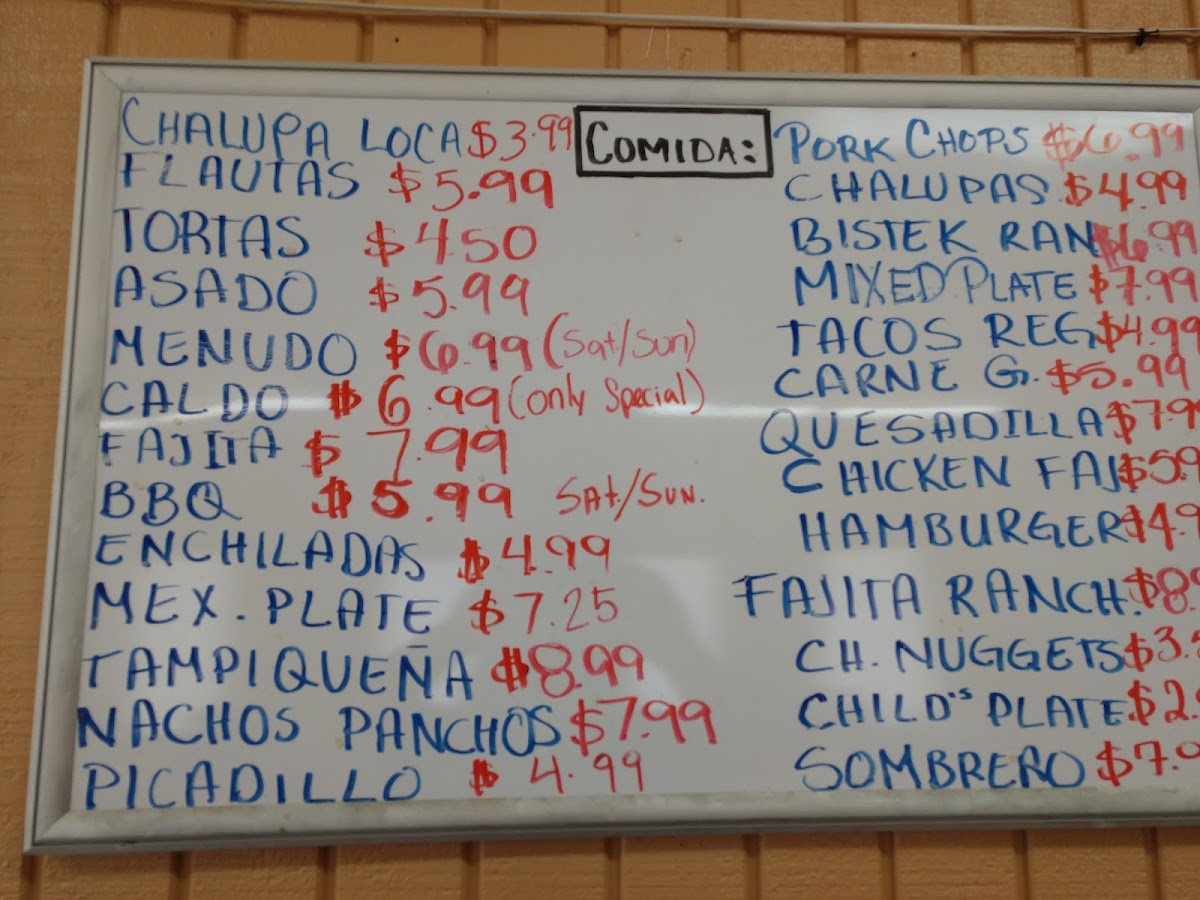 COMIDA:
CHALUPA LOCA $3.99
FLAUTAS $5.99
TORTAS $4.50
ASADO $5.99
MENUDO $6.99 (Sat/Sun)
CALDO $6.99 (only Special)
FAJITA $7.99
BBQ $5.99 SAT./SUN.
ENCHILADAS $4.99
MEX. PLATE $7.25
TAMPIQUEÑA $8.99
NACHOS PANCHOS $7.99
PICADILLO $4.99
PORK CHOPS $6.99
CHALUPAS $4.99
BISTEK RAN $6.99
MIXED PLATE $7.99
TACOS REG $4.99
CARNE G. $5.99
QUESADILLA $7.9
CHICKEN FAJ $5.9
HAMBURGER $4.9
FAJITA RANCH. $8.
CH. NUGGETS $3.
CHILD'S PLATE $2.
SOMBRERO $7.